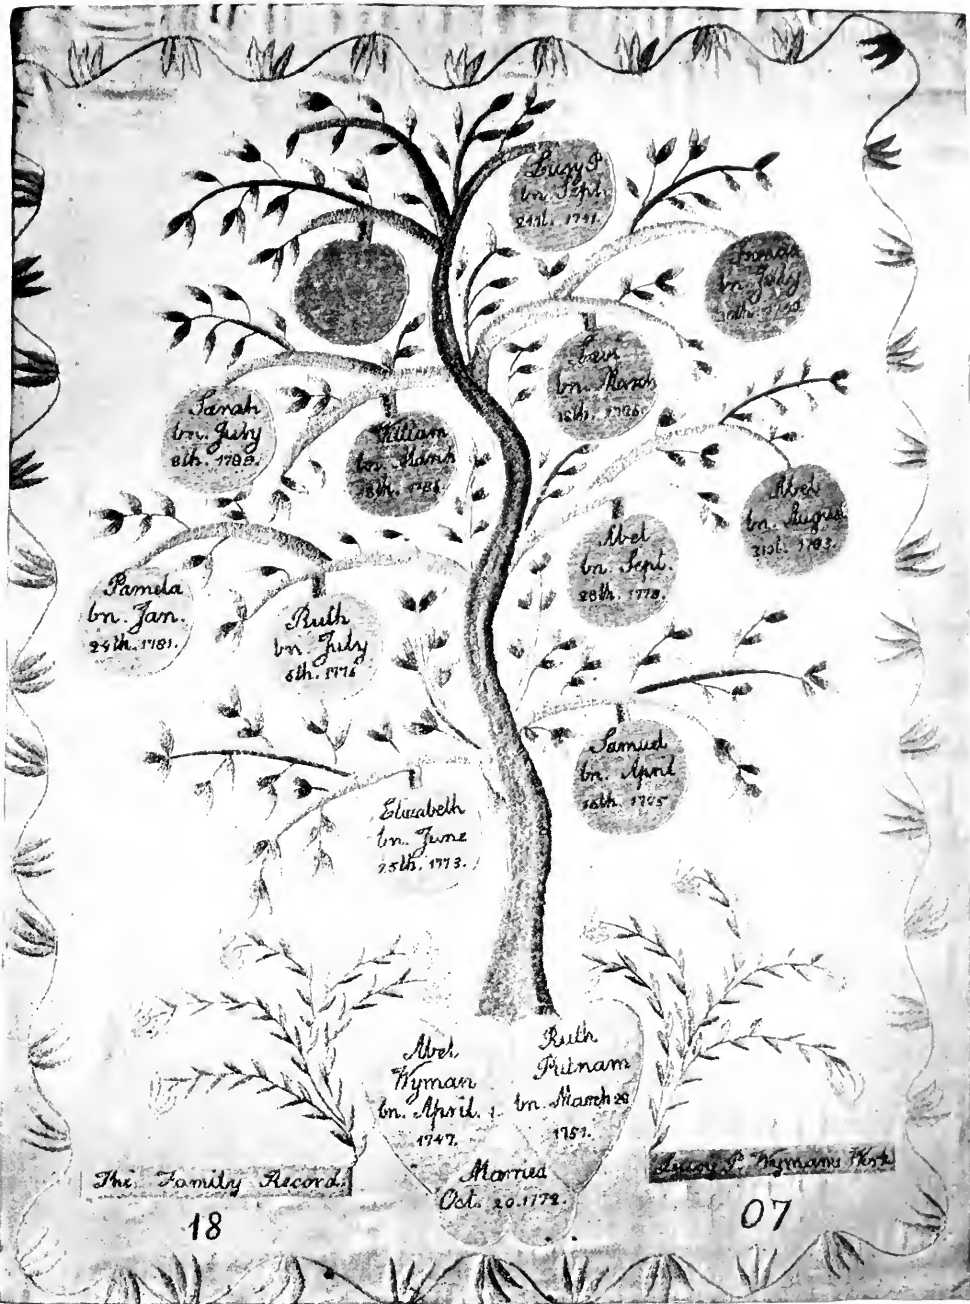 Lucy P.
bn. Sept.
21st. 1791.
bn. July
Levi
bn. March
Sarah
bn. July
8th. 1788.
William
bn. March
18th. 1786
Abel
bn. August
31st. 1783.
Abel
bn. Sept.
28th. 1778.
Pamela
bn. Jan.
29th. 1781.
Ruth
bn. July
6th. 1776
Samuel
bn. April
Elizabeth
bn. June
25th. 1773.
Abel
Wyman
bn. April. 1.
1747.
Ruth
Putnam
bn. March 20
1751.
Married
Oct. 20. 1772.
The Family Record.
Lucy P. Wymans Work
18
07